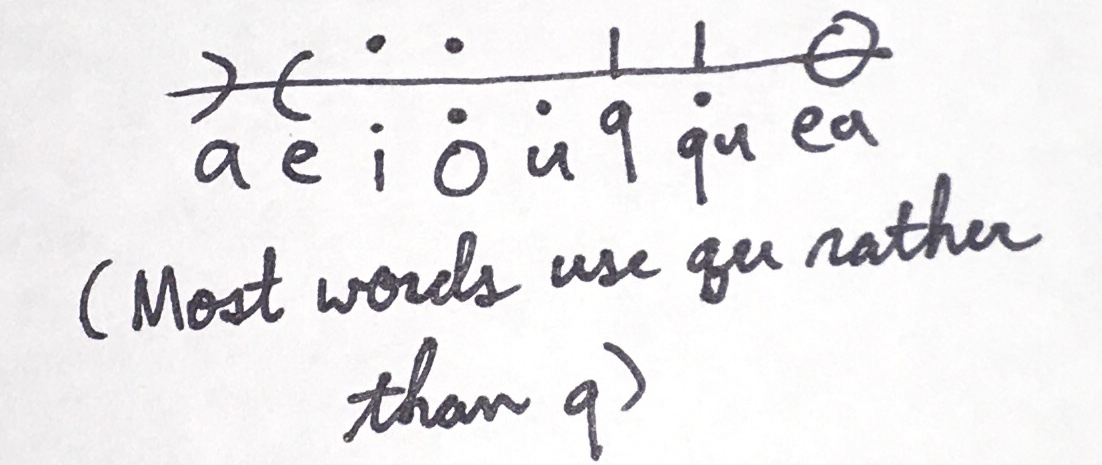 a e i o u q qu ea
(Most words use qu rather
than q)